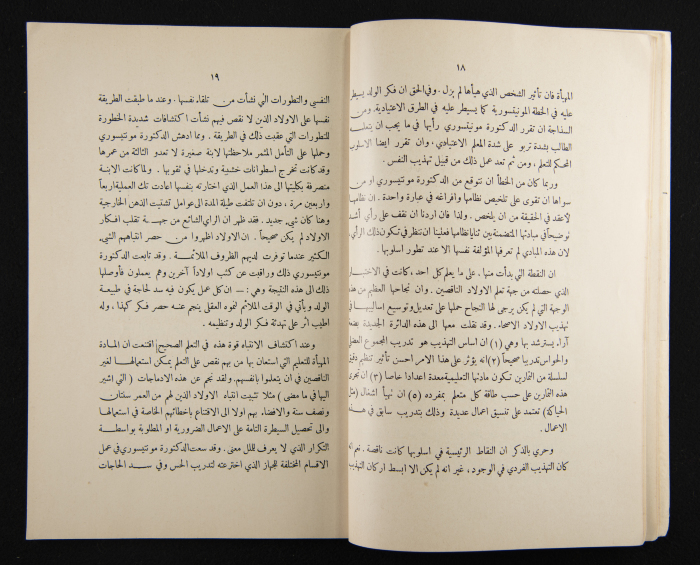 ١٨
المهيأة فان تأثير الشخص الذي هيأها لم يزل . وفي الحق ان فكر الولد يسيطر
عليه في الخطة المونتيسورية كما يسيطر عليه في الطرق الاعتيادية. ومن
السذاجة ان تقرر الدكتورة مونتيسوري رأيها في ما يجب ان يتعلمه
الطالب بشدة تربو على شدة المعلم الاعتيادي. وان تقرر ايضا الاسلوب
المحكم للتعلم ، ومن ثم تعد عمل ذلك من قبيل تهذيب النفس .
وربما كان من الخطأ ان نتوقع من الدكتورة مونتيسوري او من
سواها ان تقوى على تلخيص نظامها وافراغه في عبارة واحدة . ان نظامها
لأعقد في الحقيقة من ان يلخص . ولذا فان اردنا ان نقف على رأي أشد
وضوحاً في مبادئها المتضمنة بين ثنايا نظامها فعلينا ان ننظر في تكون ذلك الرأي ،
لان هذه المبادي لم تعرفها المؤلفة نفسها الا عند تطور اسلوبها .
ان النقطة التي بدأت منها ، على ما يعلم كل احد ، كانت في الاختبار
الذي حصلته من جهة تعلم الاولاد الناقصين . وان نجاحها العظيم من هذه
الوجهة التي لم يكن يرجى لها النجاح حملها على تعديل وتوسيع اساليبها في
تهذيب الاولاد الاصحاء . وقد نقلت معها الى هذه الدائرة الجديدة بضعة
آراء يسترشد بها وهي (١) ان اساس التهذيب هو تدريب المجموع العضلي
والحواس تدريبا صحيحاً (٢) انه يؤثر على هذا الامر احسن تأثير تنظيم دقيق
لسلسلة من التمارين تكون مادتها التعليمية معدة اعدادا خاصا (٣) ان تجري
هذه التمارين على حسب طاقة كل متعلم بمفرده (٥) ان تهيأ اشغال (مثل
الحياكة) تعتمد على تنسيق اعمال عديدة وذلك بتدريب سابق في هذه
الاعمال .
وحري بالذكر ان النقاط الرئيسية في اسلوبها كانت ناقصة . نعم انه
كان التهذيب الفردي في الوجود ، غير انه لم يكن الا ابسط اركان التهذيب
١٩
النفسي والتطورات التي نشأت من تلقاء نفسها . وعند ما طبقت الطريقة
نفسها على الاولاد الذين لا نقص فيهم نشأت اكتشافات شديدة الخطورة
للتطورات التي عقبت ذلك في الطريقة . ومما ادهش الدكتورة مونتيسوري
وحملها على التأمل المثمر ملاحظتها لابنة صغيرة لا تعدو الثالثة من عمرها
وقد كانت تخرج اسطوانات خشبية وتدخلها في ثقوبها . ولما كانت الابنة
منصرفة بكليتها الى هذا العمل الذي اختارته بنفسها اعادت تلك العملية اربعاً
واربعين مرة ، دون ان تلتفت طيلة المدة الى عوامل تشتيت الذهن الخارجية
وهنا كان شيء جديد . فقد ظهر ان الرأي الشائع من جهة تقلب افكار
الاولاد لم يكن صحيحاً . ان الاولاد اظهروا من حصر انتباههم الشيء
الكثير عندما توفرت لديهم الظروف الملائمة . وقد تابعت الدكتورة
مونتيسوري ذلك وراقبت عن كثب اولاداً آخرين وهم يعملون فأوصلها
ذلك الى هذه النتيجة وهي : — ان كل عمل يكون فيه سد لحاجة في طبيعة
الولد ويأتي في الوقت الملائم لنموه العقلي ينجم عنه حصر فكر كهذا ، وله
اطيب اثر على تهدئة فكر الولد وتنظيمه .
وعند اكتشاف الانتباه قوة هذه في التعلم الصحيح اقتنعت ان المادة
المهيأة للتعليم التي استعان بها من بهم نقص على التعلم يمكن استعمالها لغير
الناقصين في ان يتعلموا بانفسهم. ولقد نجم عن هذه الادماجات ( التي اشير
اليها في ما مضى ) مثلا تثبيت انتباه الاولاد الذين لهم من العمر سنتان
ونصف سنة والافضاء بهم اولا الى الاقتناع باخطائهم الخاصة في استعمالها
والى تحصيل السيطرة التامة على الاعمال الضرورية او المطلوبة بواسطة
التكرار الذي لا يعرف للملل معنى . وقد سعت الدكتورة مونتيسوري في عمل
الاقسام المختلفة للجهاز الذي اخترعته لتدريب الحس وفي سد الحاجات